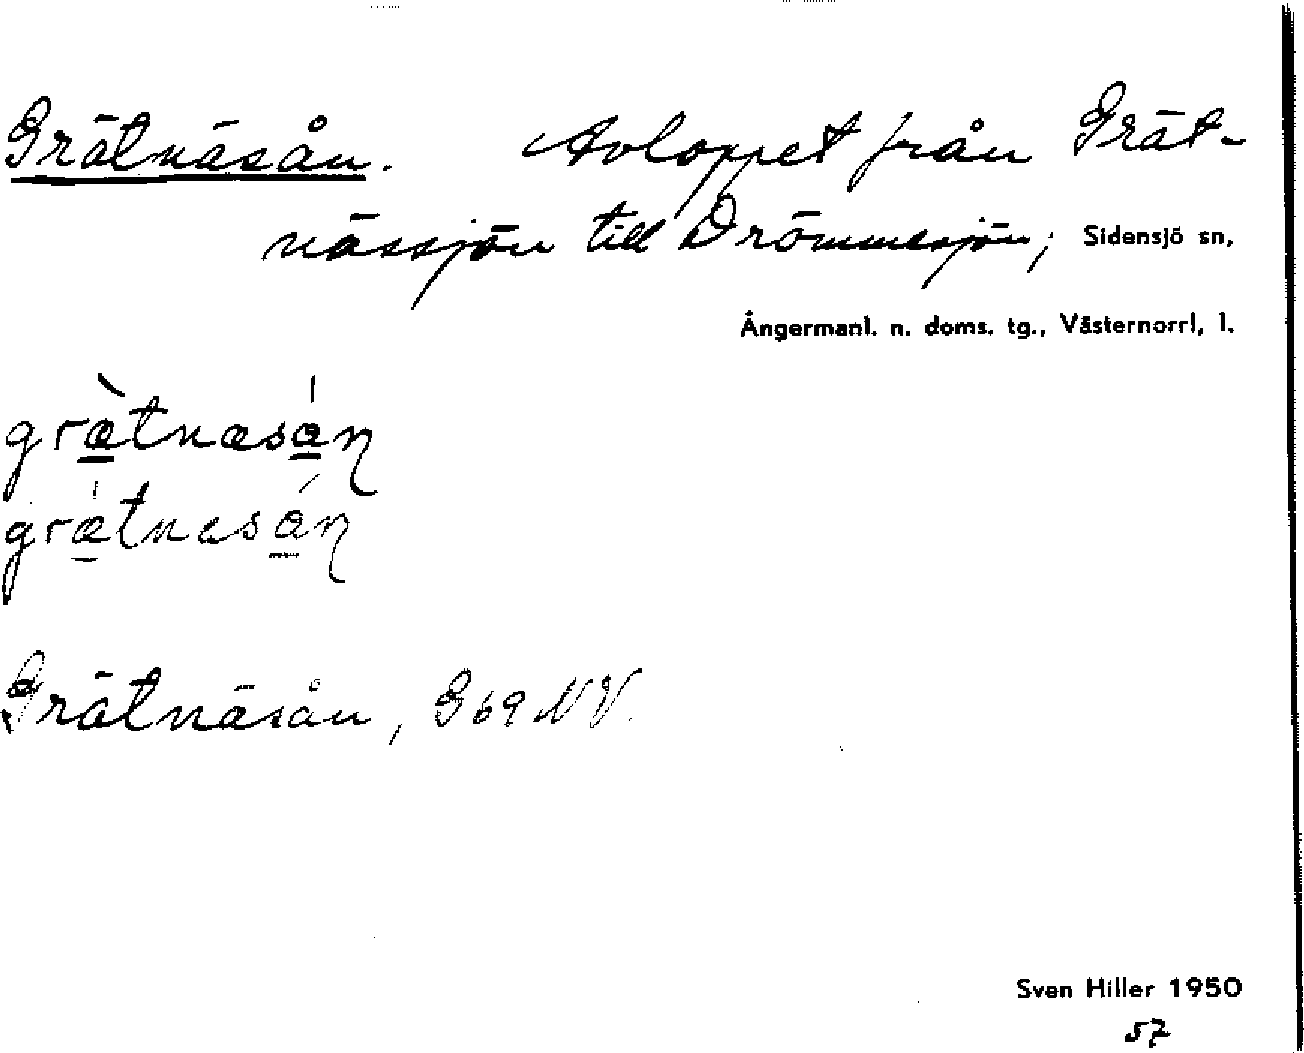 Grätnäsån. Avloppet från Grät-
nässjön till Drömmesjön; Sidensjö sn,
Ångermanl. n. doms. tg., Västernorrl, l.
græ̀tnæsán
græ̀tnæsán
Grätnäsån, G69 NV.
Sven Hiller 1950
57